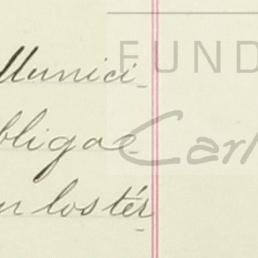 Munici-
bligae-
n los tér-
FUND
Carl